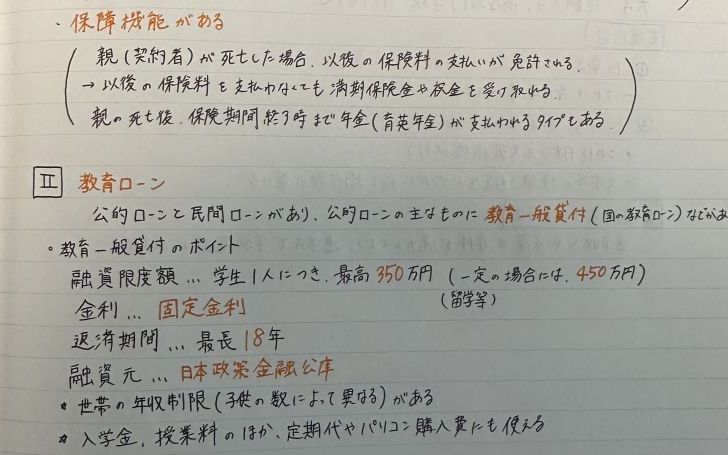 ・保障機能がある
親(契約者)が死亡した場合、以後の保険料の支払いが免許される。
→ 以後の保険料を支払わなくても満期保険金や祝金を受け取れる
親の死亡後、保険期間終了時まで年金(育英年金)が支払われるタイプもある
Ⅱ 教育ローン
公的ローンと民間ローンがあり、公的ローンの主なものに教育一般貸付(国の教育ローン)などがあ
・教育一般貸付のポイント
融資限度額 … 学生1人につき、最高350万円 (一定の場合には、450万円)
(留学等)
金利 … 固定金利
返済期間 … 最長18年
融資元 … 日本政策金融公庫
* 世帯の年収制限(子供の数によって異なる)がある
* 入学金、授業料のほか、定期代やパソコン購入費にも使える